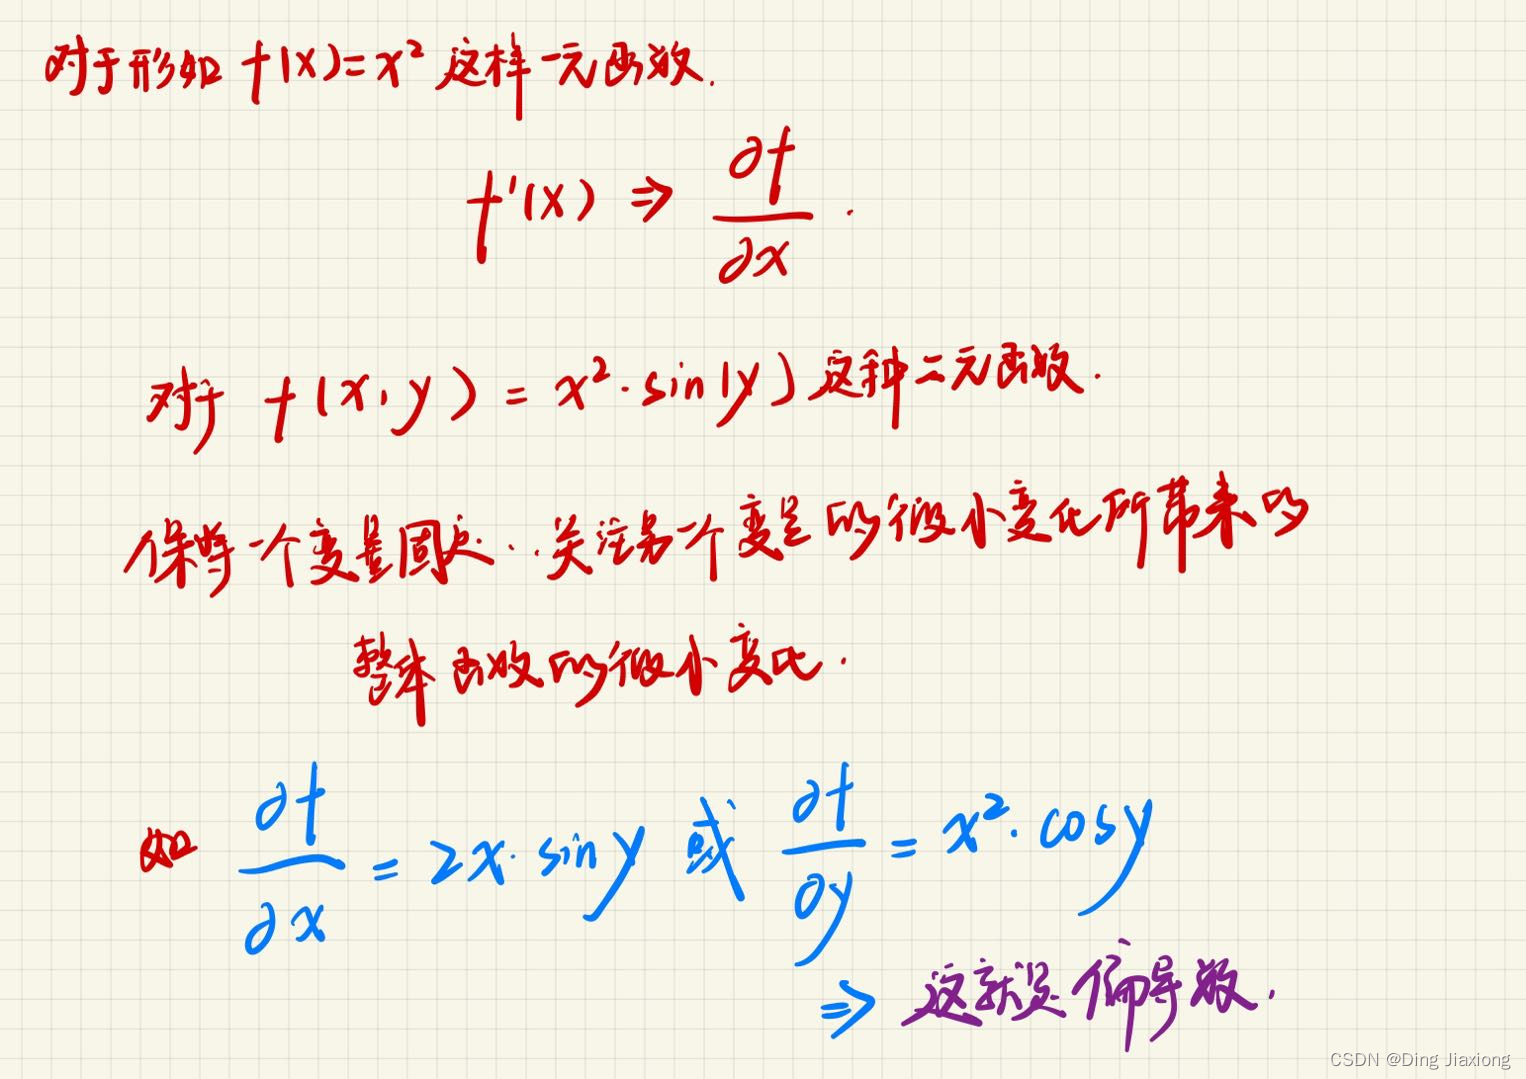 对于形如 f(x)=x² 这样一元函数.
f'(x) ⇒ ∂f/∂x .
对于 f(x,y) = x²·sin(y) 这种二元函数.
保持一个变量固定..关注另一个变量的微小变化所带来的
整体函数的微小变化.
如 ∂f/∂x = 2x·siny 或 ∂f/∂y = x²·cosy
⇒ 这就是偏导数.
CSDN @Ding Jiaxiong